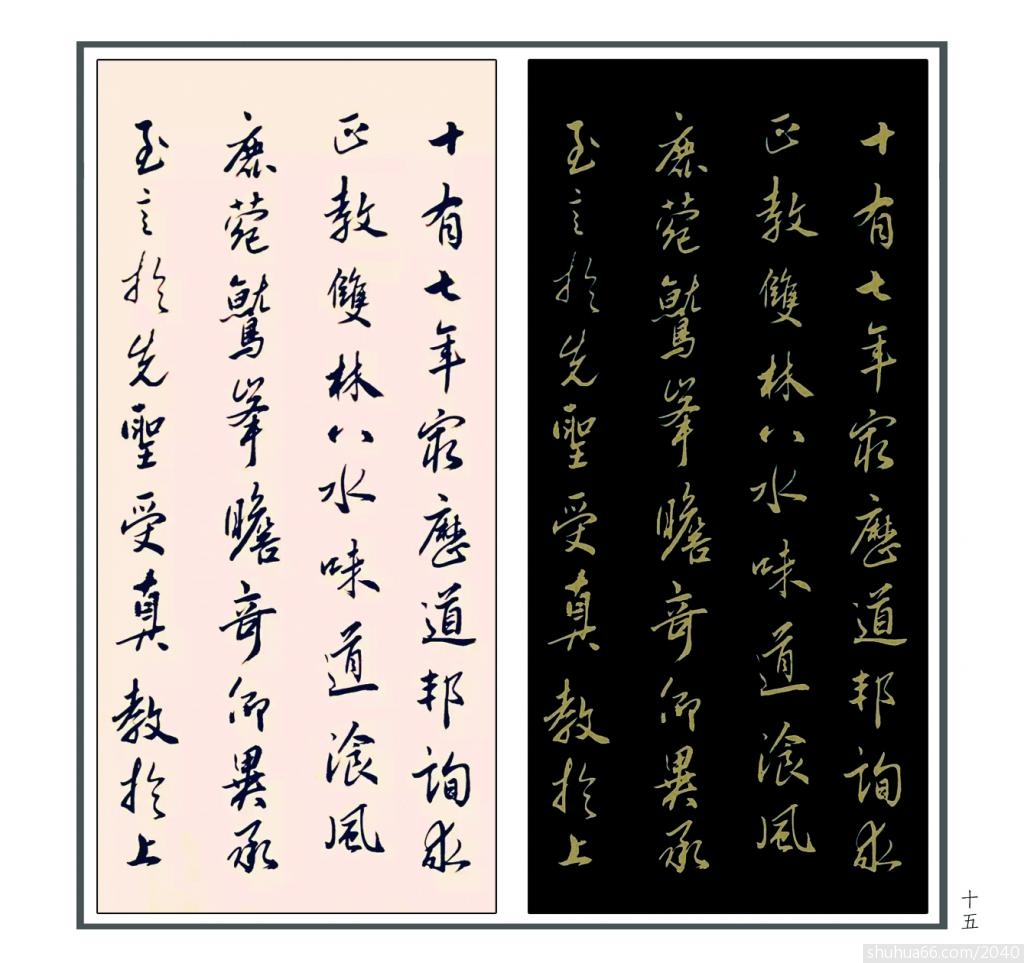 十有七年窮歷道邦詢求
正教雙林八水味道飡風
鹿菀鷲峯瞻奇仰異承
至言於先聖受真教於上
十有七年窮歷道邦詢求
正教雙林八水味道飡風
鹿菀鷲峯瞻奇仰異承
至言於先聖受真教於上
十五
shuhua66.com/2040